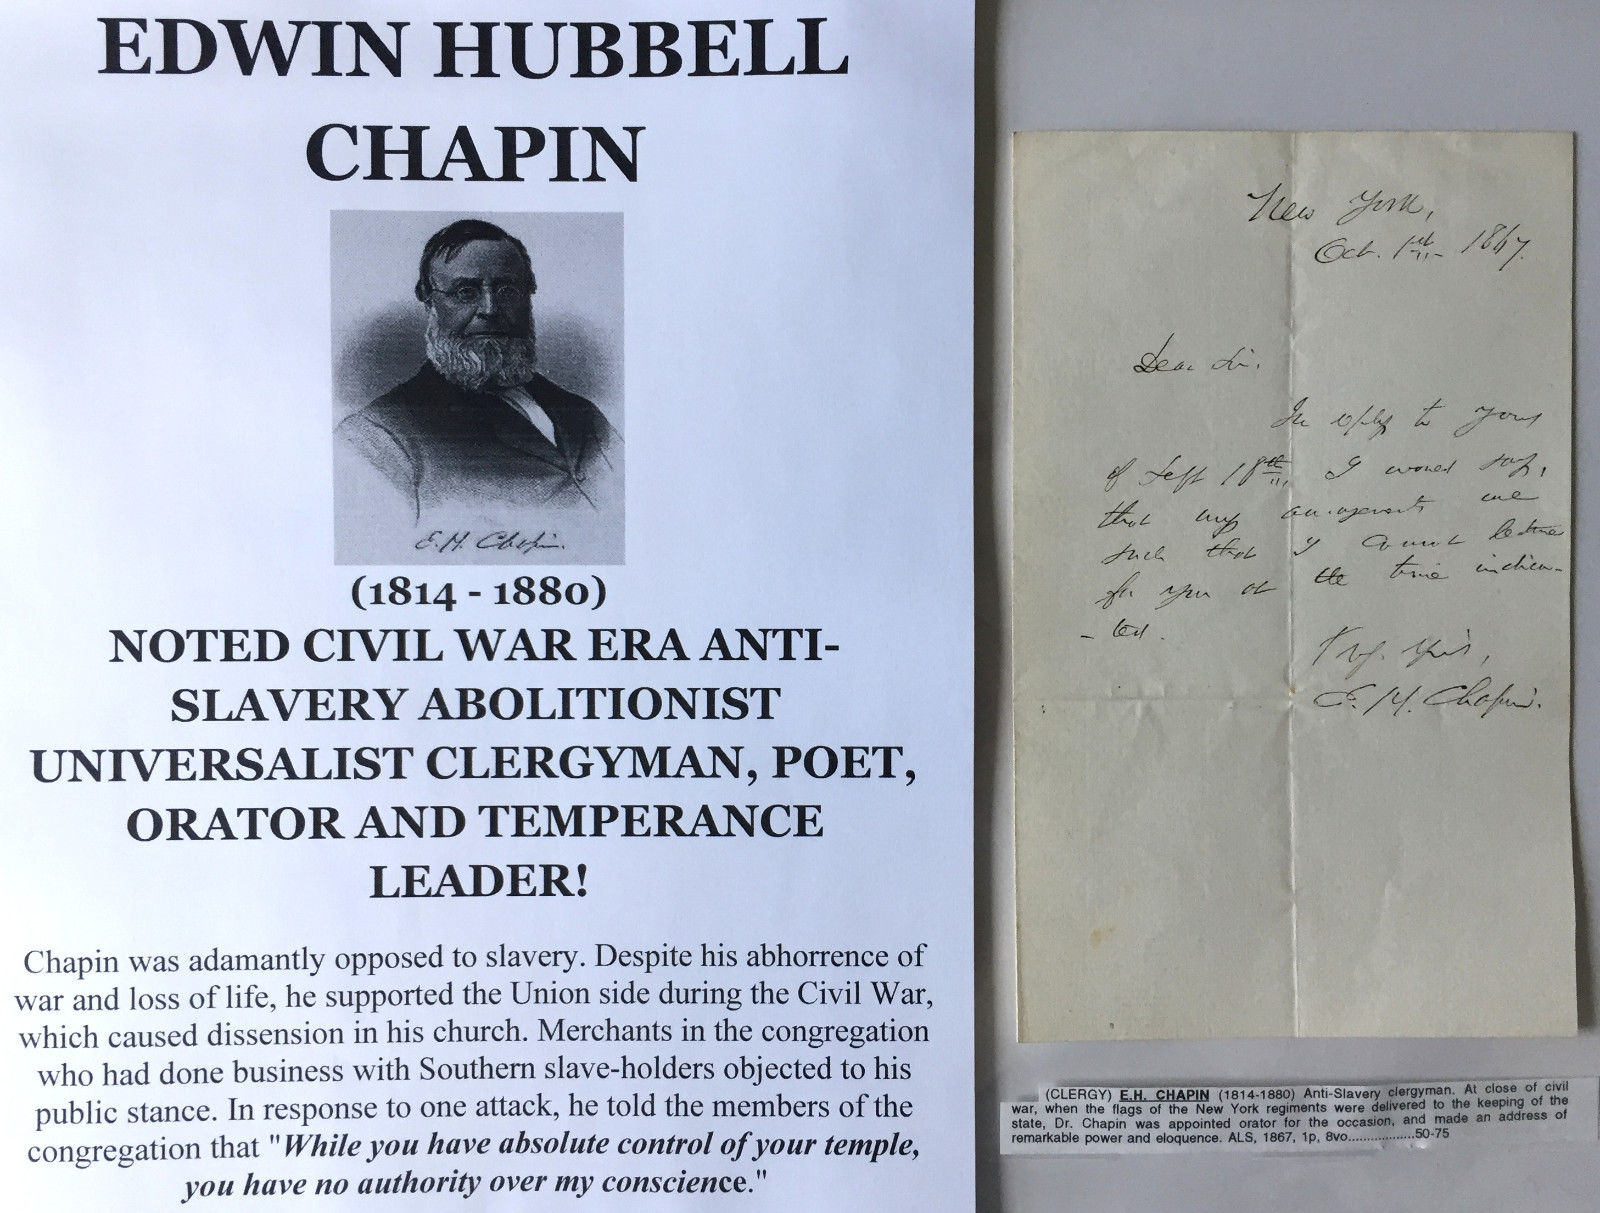 EDWIN HUBBELL
CHAPIN
E. H. Chapin.
(1814 - 1880)
NOTED CIVIL WAR ERA ANTI-
SLAVERY ABOLITIONIST
UNIVERSALIST CLERGYMAN, POET,
ORATOR AND TEMPERANCE
LEADER!
Chapin was adamantly opposed to slavery. Despite his abhorrence of
war and loss of life, he supported the Union side during the Civil War,
which caused dissension in his church. Merchants in the congregation
who had done business with Southern slave-holders objected to his
public stance. In response to one attack, he told the members of the
congregation that "While you have absolute control of your temple,
you have no authority over my conscience."
New York,
Oct. 1st 1867.
Dear Sir.
In reply to yours
of Sept 18th I would say,
that my arrangements are
such that I cannot lecture
for you at the time indica-
- ted.
E. H. Chapin.
(CLERGY) E.H. CHAPIN (1814-1880) Anti-Slavery clergyman. At close of civil
war, when the flags of the New York regiments were delivered to the keeping of the
state, Dr. Chapin was appointed orator for the occasion, and made an address of
remarkable power and eloquence. ALS, 1867, 1p, 8vo..................50-75